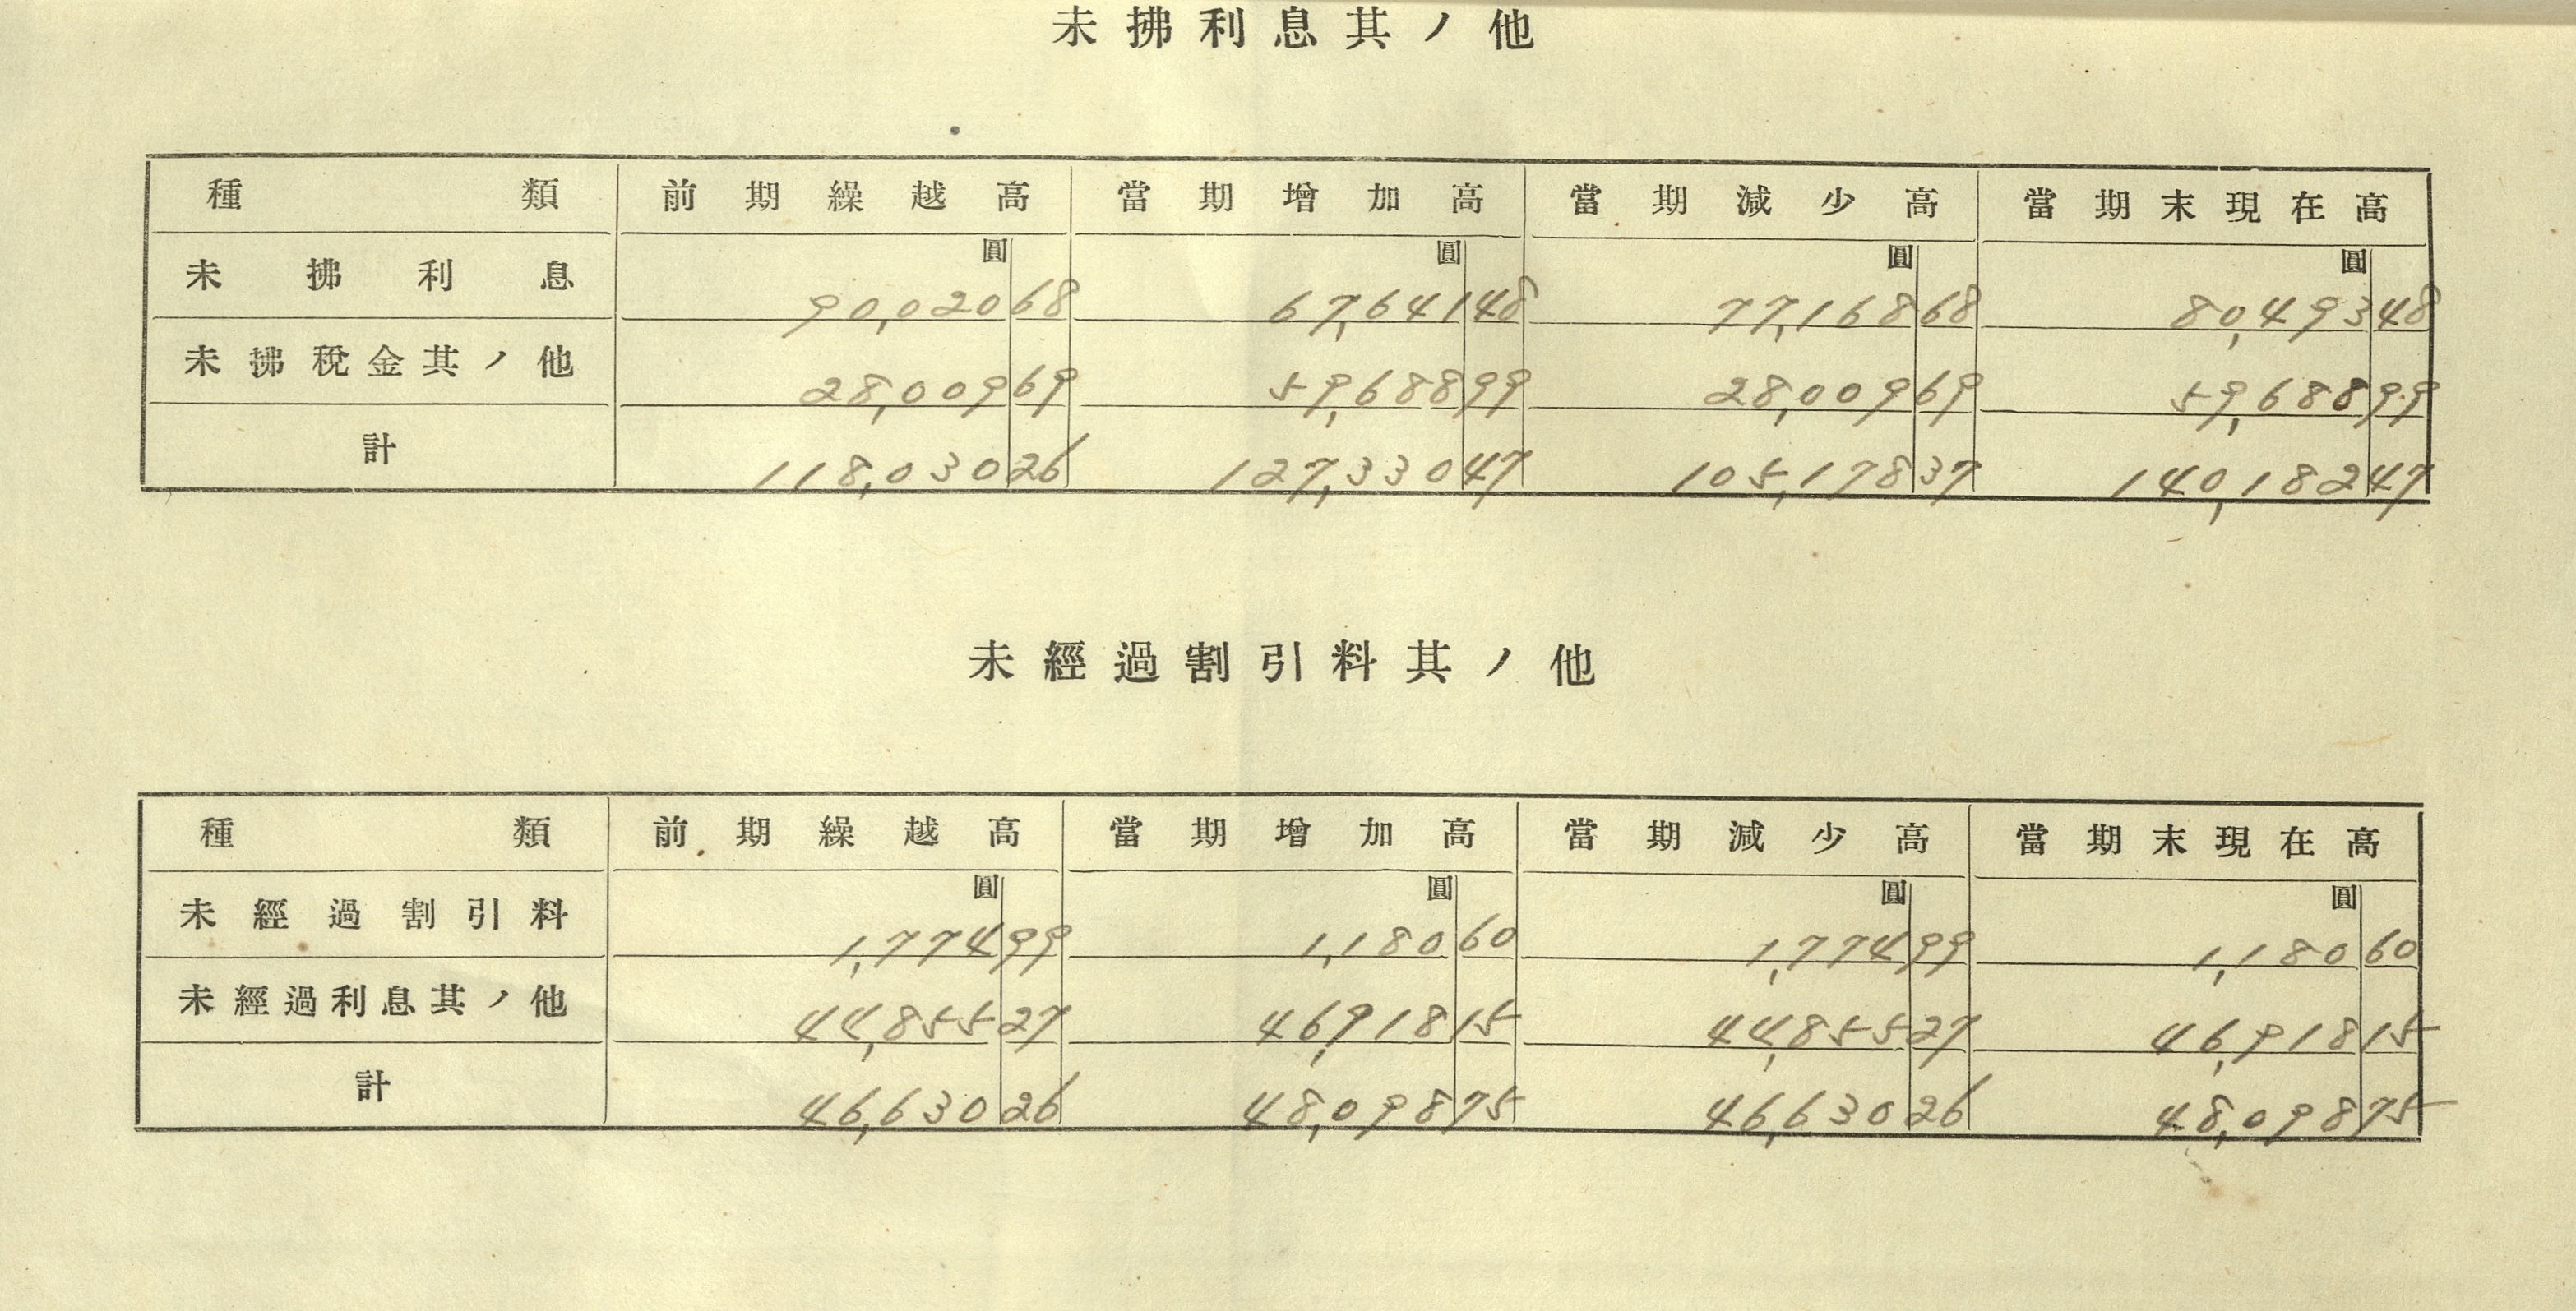 未拂利息其ノ他
種類 前期繰越高 當期增加高 當期減少高 當期末現在高
圓 圓 圓 圓
未拂利息 90,020 68 67,641 48 77,168 68 80,493 48
未拂稅金其ノ他 28,009 69 59,688 99 28,009 69 59,688 99
計 118,030 26 127,330 47 105,178 37 140,182 47
未經過割引料其ノ他
種類 前期繰越高 當期增加高 當期減少高 當期末現在高
圓 圓 圓 圓
未經過割引料 1,774 99 1,180 60 1,774 99 1,180 60
未經過利息其ノ他 44,855 27 46,918 15 44,855 27 46,918 15
計 46,630 26 48,098 75 46,630 26 48,098 75